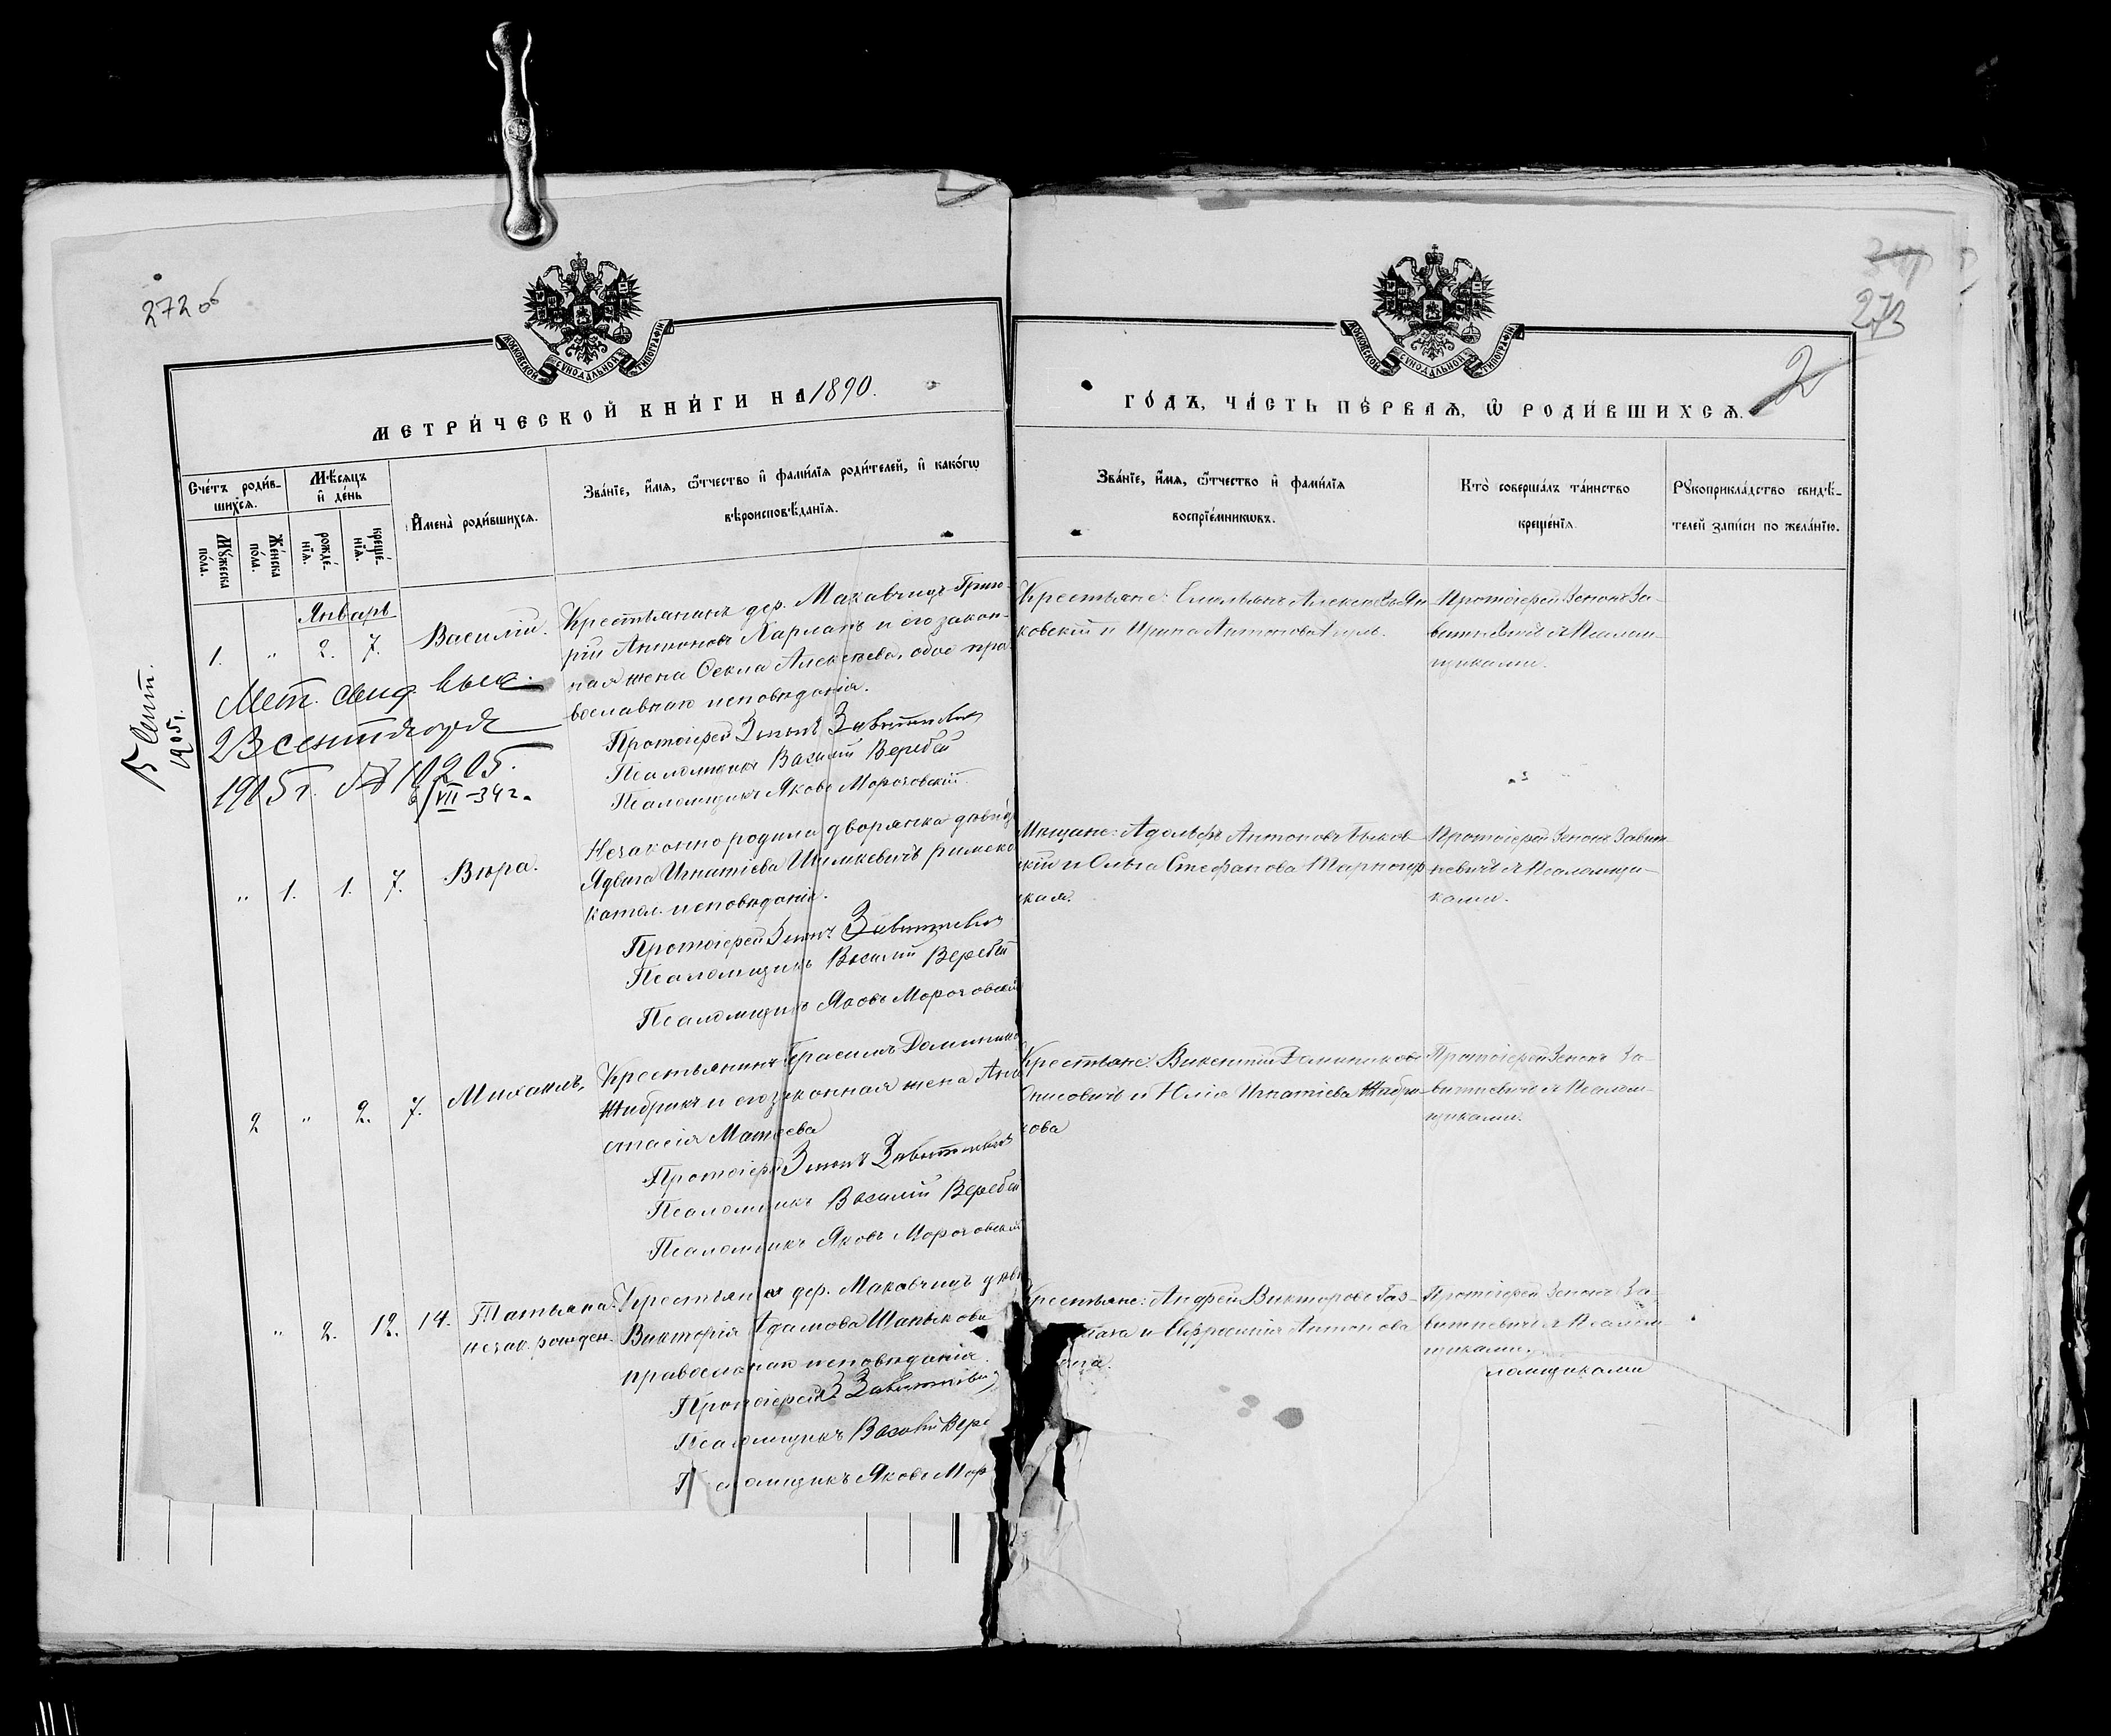 272 об
273
2
МОСКОВСКОЙ СѴНОДАЛЬНОЙ ТИПОГРАФІИ
МОСКОВСКОЙ СѴНОДАЛЬНОЙ ТИПОГРАФІИ
МЕТРИ́ЧЕСКОЙ КНИ́ГИ НА 1890.
ГО́ДЪ, ЧА́СТЬ ПЕ́РВАѦ, Ѽ РОДИ́ВШИХСѦ.
Сче́тъ роди́в-
шихсѧ.
Мѣ́сѧцъ
и҆ де́нь
Мꙋ́жеска
по́ла.
Же́нска
по́ла.
рожде́-
нїѧ.
креще́-
нїѧ.
И҆мена̀ роди́вшихсѧ.
Зва́нїе, и҆́мѧ, ѻ҆́тчество и҆ фами́лїѧ роди́телей, и҆ како́гѡ
вѣроисповѣ́данїѧ.
Зва́нїе, и҆́мѧ, ѻ҆́тчество и҆ фами́лїѧ
воспрїе́мникѡвъ.
Кто̀ соверша́лъ та́инство
креще́нїѧ.
Рꙋкоприкла́дство свидѣ́-
телей за́писи по жела́нїю.
Январь
1. " 2. 7. Василій.
Крестьянинъ дер. Маковчицъ Григо-
рій Антоновъ Харланъ и его закон-
ная жена Ѳекла Алексѣева, обое пра-
вославнаго исповѣданія.
Протоіерей Зенонъ Завитневичъ
Псаломщикъ Василій Веребей
Псаломщикъ Яковъ Морочовскій
Крестьяне: Емельянъ Алексѣевъ Ян-
ковскій и Ирина Антонова
Протоіерей Зенонъ За-
витневичъ съ Псалом-
щиками.
Мет. свид. выд.
23 сентября
1905 г. № 10205.
6/VII-34 г.
1905 г.
" 1. 1. 7. Вѣра.
Незаконно родила дворянка дѣвица
Ядвига Игнатіева Шимкевичъ римско
катол. исповѣданія.
Протоіерей Зенонъ Завитневичъ
Псаломщикъ Василій Веребей
Псаломщикъ Яковъ Морочовскій
Мѣщане: Адольфъ Антоновъ Быков-
скій и Ольга Стефанова Тарногур-
ская.
Протоіерей Зенонъ Завит-
невичъ съ Псаломщи-
ками.
2 " 2. 7. Михаилъ.
Крестьянинъ Герасимъ Доминиковъ
Жибрикъ и его законная жена Ана-
стасія Матѳеева
Протоіерей Зенонъ Завитневичъ
Псаломщикъ Василій Веребей
Псаломщикъ Яковъ Морочовскій
Крестьяне: Викентій Доминиковъ
Онисовичъ и Юлія Игнатіева Жибри-
кова
Протоіерей Зенонъ За-
витневичъ съ Псалом-
щиками.
" 2. 12. 14. Татьяна
незак. рожден.
Крестьянка дер. Маковчицъ дѣви
Викторія Адамова Шапыкова
православнаго исповѣданія.
Протоіерей З Завитневичъ
Псаломщикъ Василій Вере
Псаломщикъ Яковъ Мор
Крестьяне: Андрей Викторовъ Газ-
и Евфросинія Антонова
Протоіерей Зенонъ За-
витневичъ съ Псалом-
щиками.
ломщиками